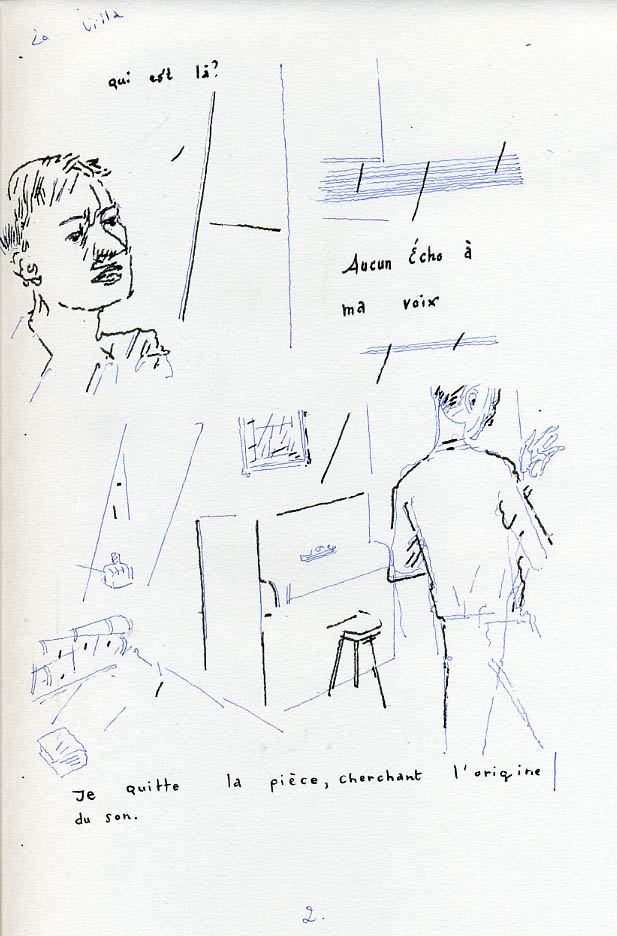 La Villa
qui est là?
Aucun Écho à
ma voix
Je quitte la pièce, cherchant l'origine
du son.
2.